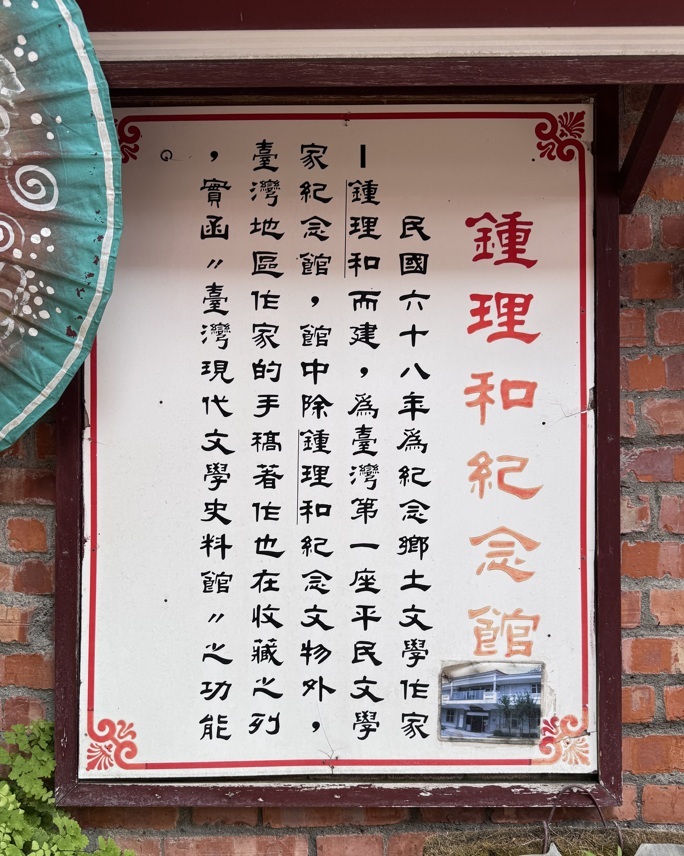 鍾理和紀念館
民國六十八年為紀念鄉土文學作家
—鍾理和而建，為臺灣第一座平民文學
家紀念館，館中除鍾理和紀念文物外，
臺灣地區作家的手稿著作也在收藏之列
，實函〃臺灣現代文學史料館〃之功能
。